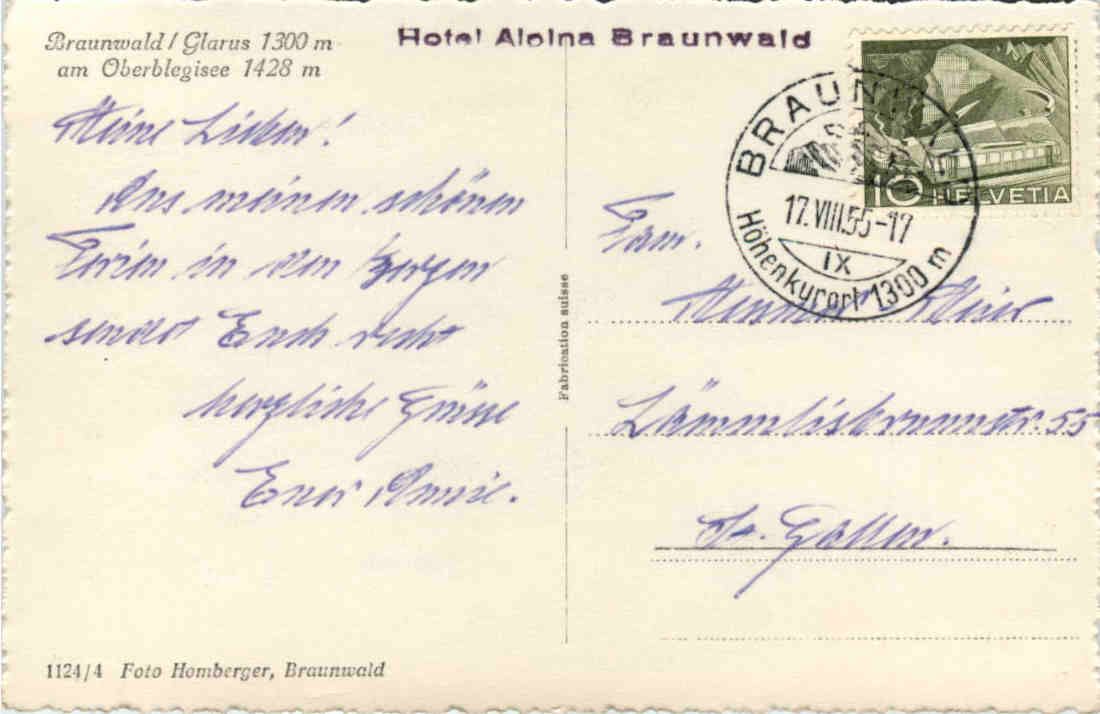 Braunwald / Glarus 1300 m
am Oberblegisee 1428 m
Meine Lieben!
Aus meinen schönen
Ferien in den Bergen
sendet Euch recht
herzliche Grüsse
Euer Annie.
1124/4 Foto Homberger, Braunwald
Fabrication suisse
Hotel Alpina Braunwald
10 HELVETIA
BRAUNWALD
17.VIII.55-17
IX
Höhenkurort 1300 m
Fam.
Meier
Lämmlisbrunnstr. 55
St. Gallen.